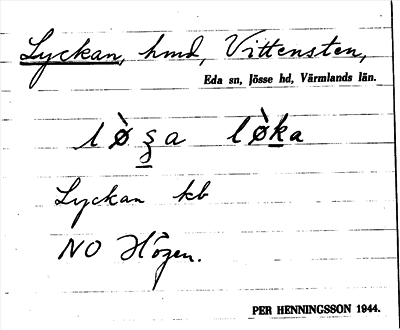 Lyckan, hmd, Vittensten,
Eda sn, Jösse hd, Värmlands län.
lø̀ʒa lø̀ka
Lyckan kb
NO Högen.
PER HENNINGSSON 1944.